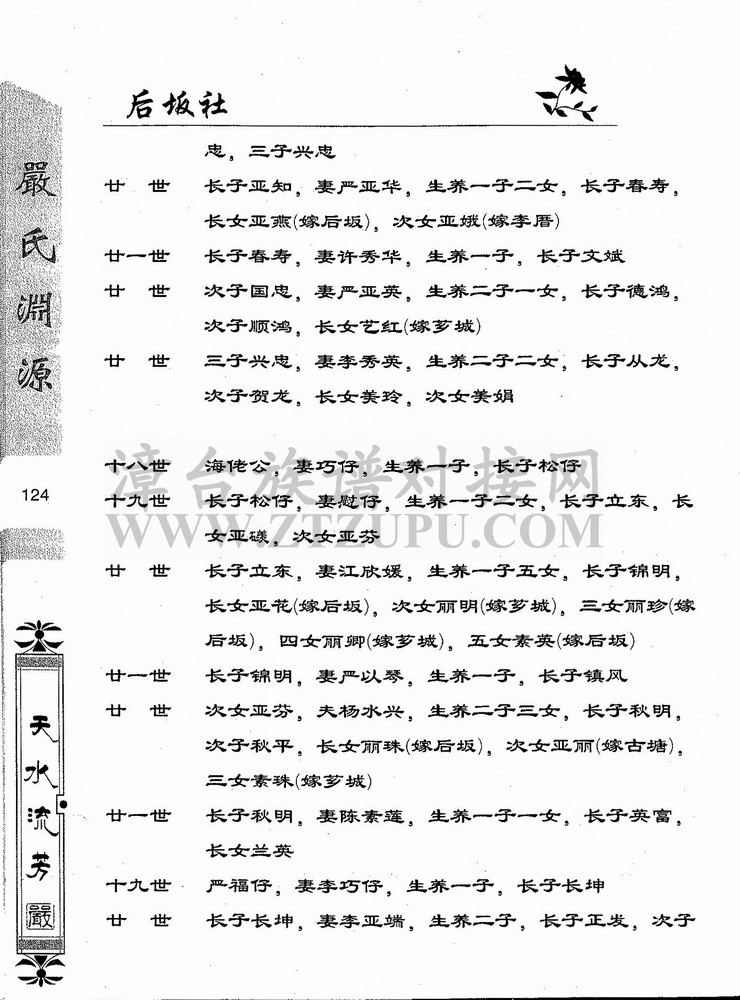 后坂社
忠，三子兴忠
廿　世　长子亚知，妻严亚华，生养一子二女，长子春寿，
长女亚燕(嫁后坂)，次女亚娥(嫁李厝)
廿一世　长子春寿，妻许秀华，生养一子，长子文斌
廿　世　次子国忠，妻严亚英，生养二子一女，长子德鸿，
次子顺鸿，长女艺红(嫁芗城)
廿　世　三子兴忠，妻李秀英，生养二子二女，长子从龙，
次子贺龙，长女美玲，次女美娟
十八世　海佬公，妻巧仔，生养一子，长子松仔
十九世　长子松仔，妻慰仔，生养一子二女，长子立东，长
女亚𥕥，次女亚芬
廿　世　长子立东，妻江欣媛，生养一子五女，长子锦明，
长女亚花(嫁后坂)，次女丽明(嫁芗城)，三女丽珍(嫁
后坂)，四女丽卿(嫁芗城)，五女素英(嫁后坂)
廿一世　长子锦明，妻严以琴，生养一子，长子镇风
廿　世　次女亚芬，夫杨水兴，生养二子三女，长子秋明，
次子秋平，长女丽珠(嫁后坂)，次女亚丽(嫁古塘)，
三女素珠(嫁芗城)
廿一世　长子秋明，妻陈素莲，生养一子一女，长子英富，
长女兰英
十九世　严福仔，妻李巧仔，生养一子，长子长坤
廿　世　长子长坤，妻李亚端，生养二子，长子正发，次子
嚴氏淵源
124
天水流芳
嚴
漳台族谱对接网
WWW.ZTZUPU.COM